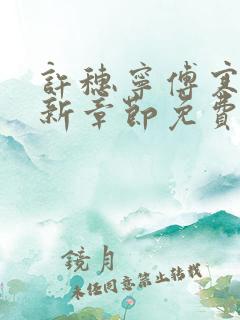 許穗寧傅寒
新章節免費
鏡月
未經同意禁止轉載